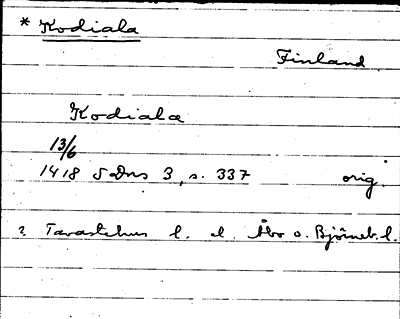 * Kodiala
Finland
Kodiala
13/6
1418 SDns 3, s. 337 orig.
? Tavastehus l. el. Åbo o. Björneb. l.